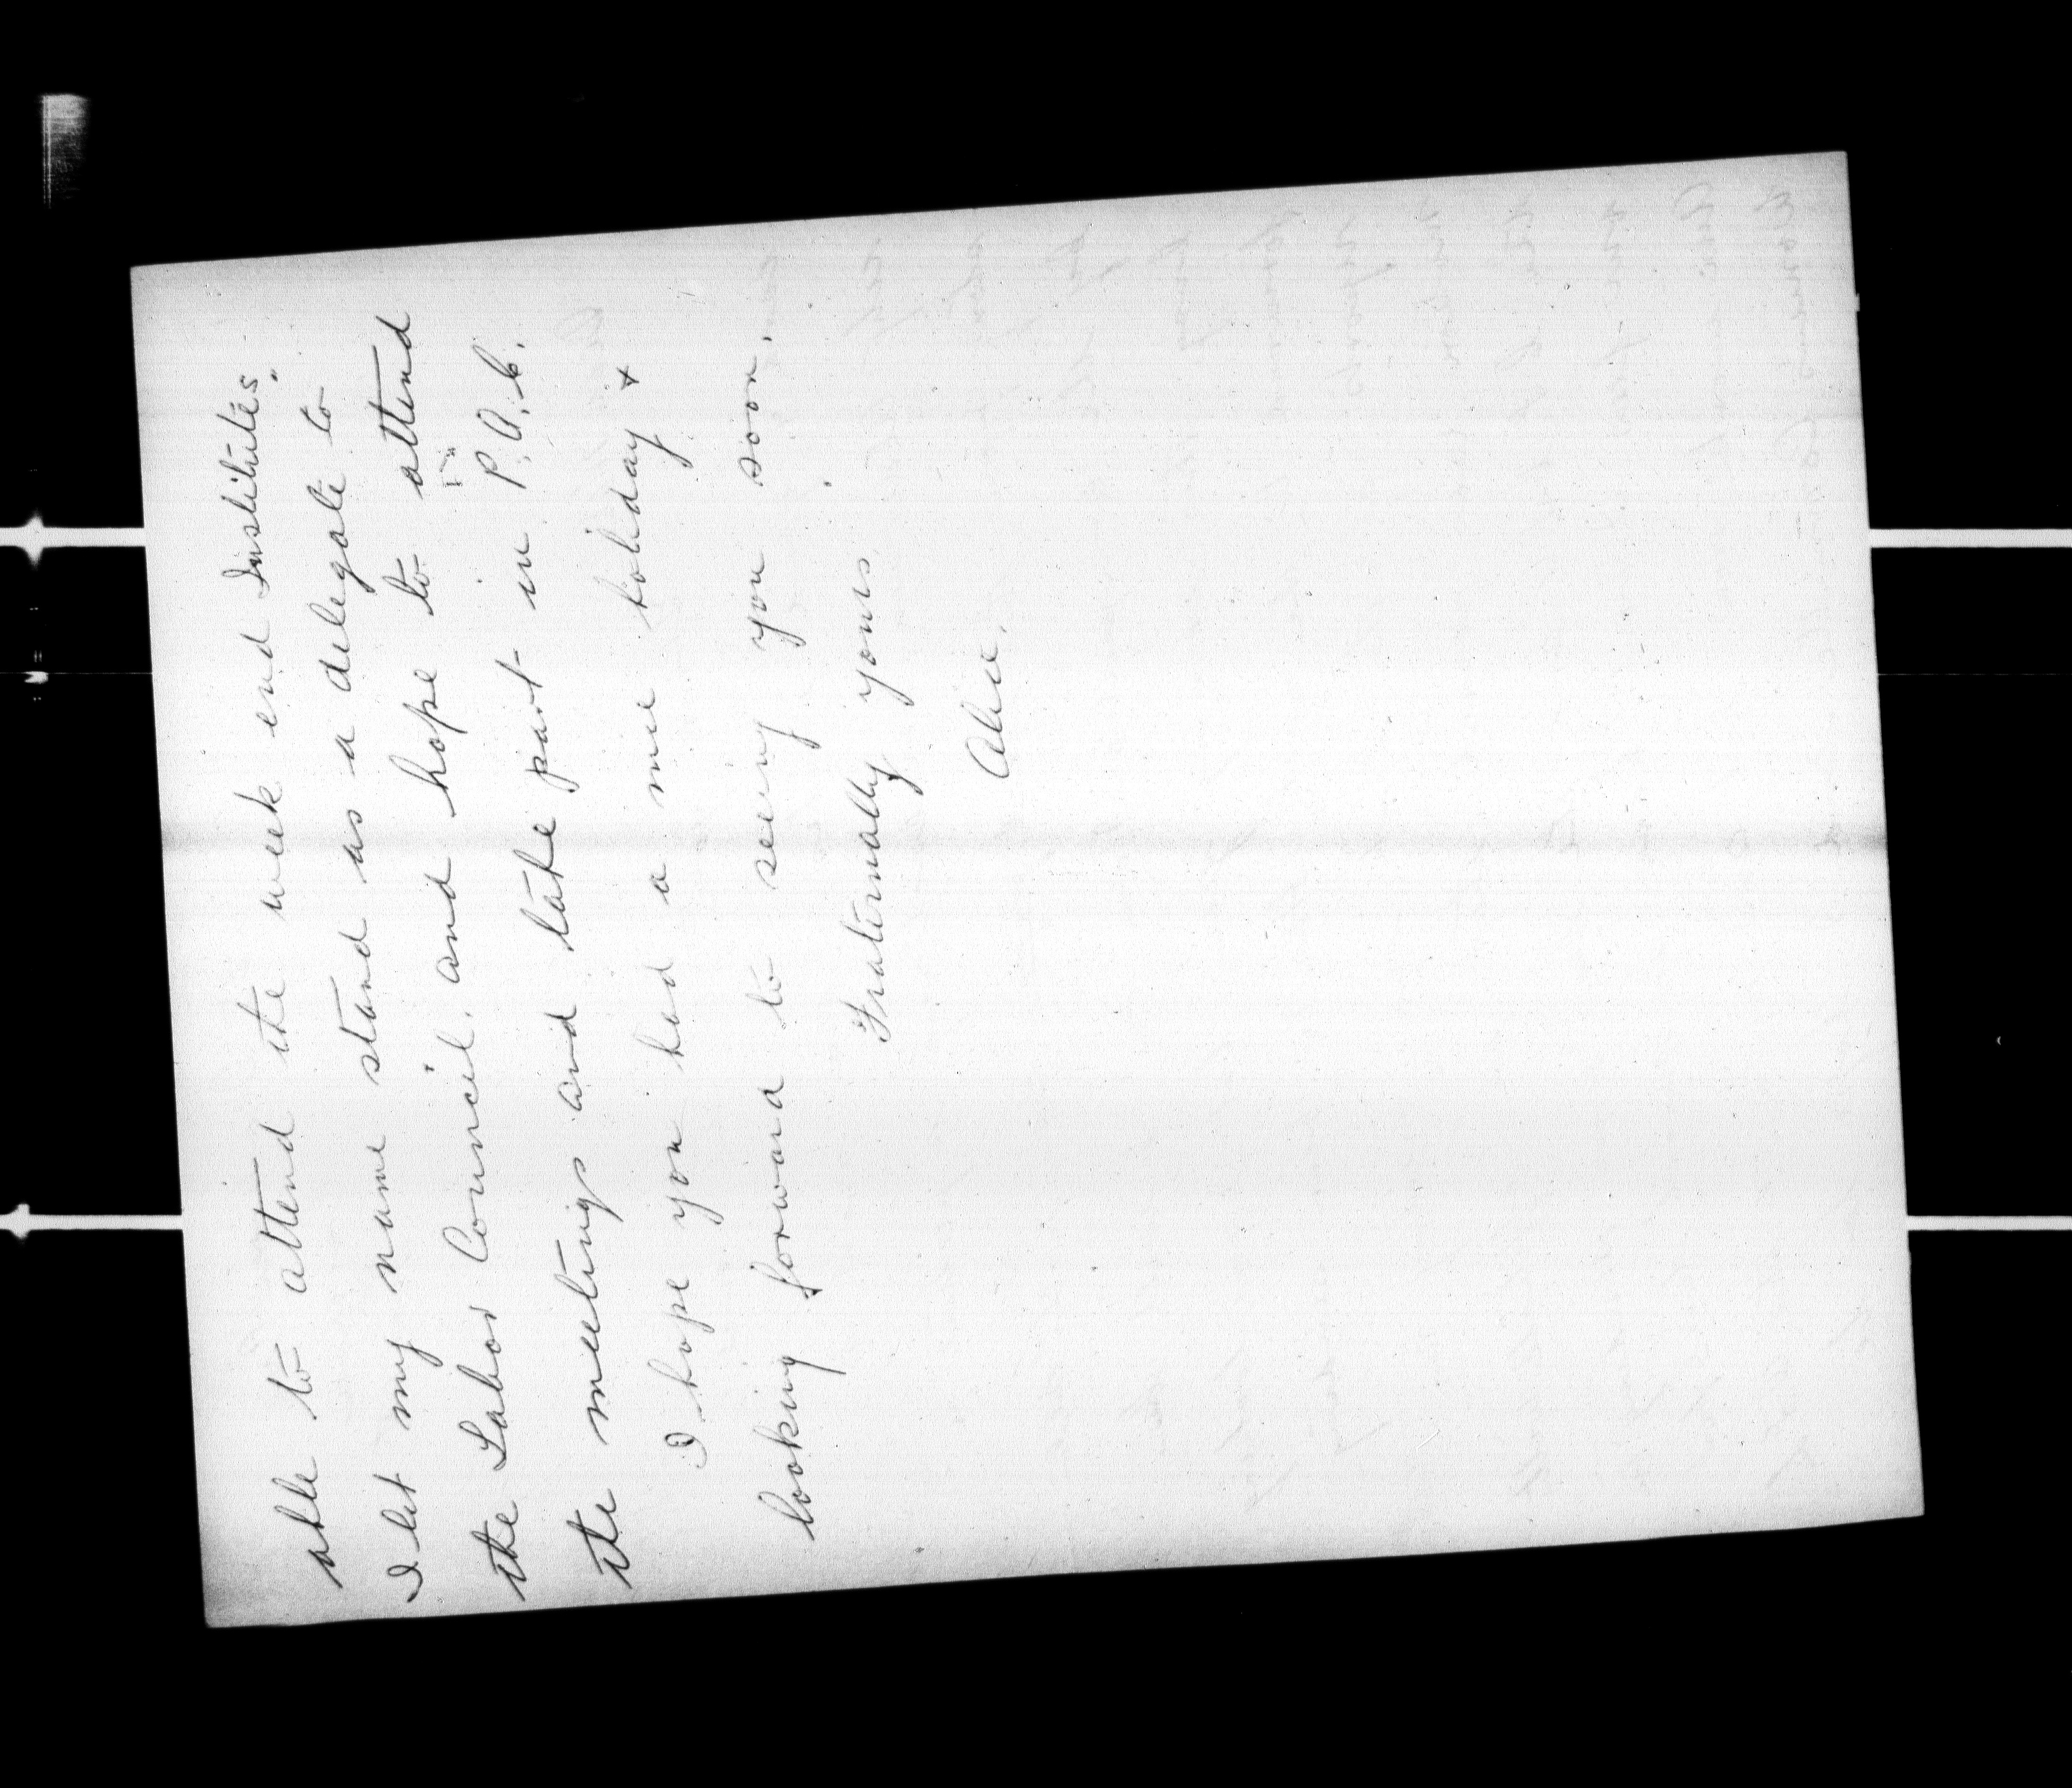 able to attend the week end Institutes.
I let my name stand as a delegate to
the Labor Council. and hope to attend
the meetings and take part in P.A.C.
I hope you had a nice holiday +
looking forward to seeing you soon.
Fraternally yours
Alice.